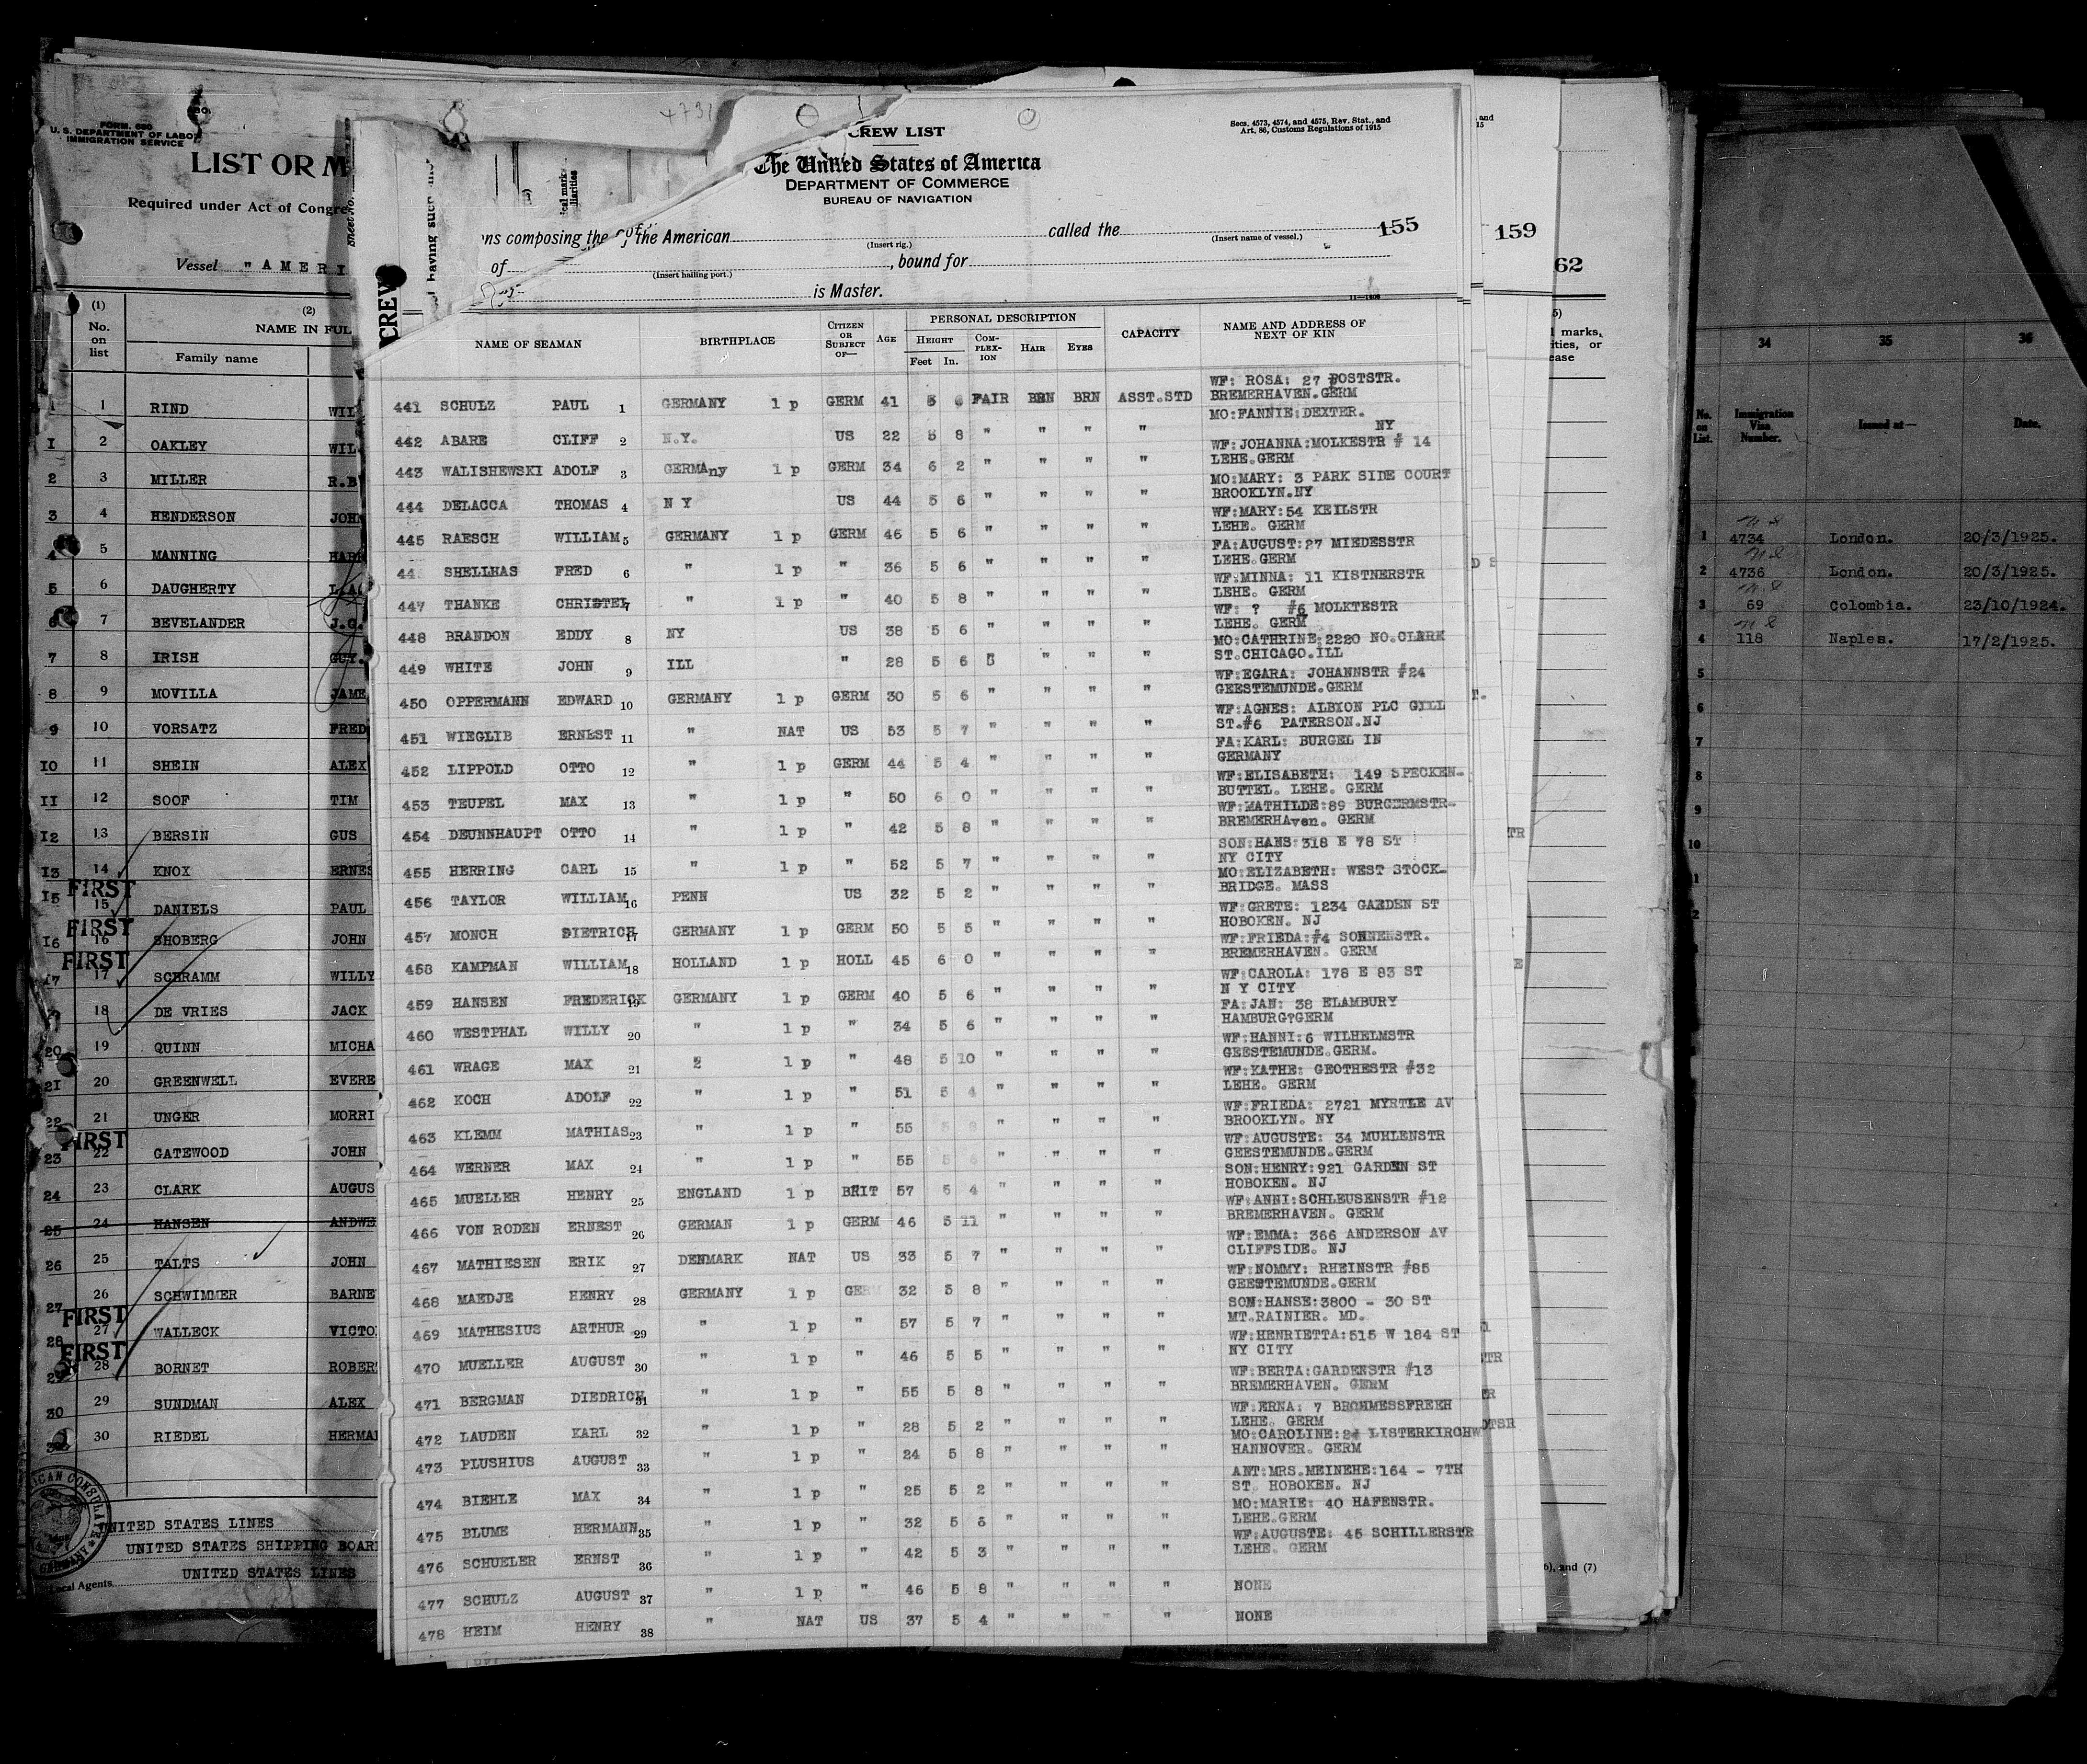 FORM 680
U. S. DEPARTMENT OF LABOR
IMMIGRATION SERVICE
LIST OR M
Required under Act of Congre
Vessel "AMERI
(1) (2)
No. on list
NAME IN FUL
Family name
1 RIND WIL
2 OAKLEY WIL
3 MILLER R.B
4 HENDERSON JOH
5 MANNING HAR
6 DAUGHERTY
7 BEVELANDER J.G.
8 IRISH GUY.
9 MOVILLA JAME
10 VORSATZ FRED
11 SHEIN ALEX
12 SOOF TIM
13 BERSIN GUS
14 KNOX ERNES
FIRST
15 DANIELS PAUL
FIRST
16 SHOBERG JOHN
FIRST
17 SCHRAMM WILLY
18 DE VRIES JACK
19 QUINN MICHA
20 GREENWELL EVERE
21 UNGER MORRI
FIRST
22 GATEWOOD JOHN
23 CLARK AUGUS
24 HANSEN ANDWE
25 TALTS JOHN
26 SCHWIMMER BARNE
FIRST
27 WALLECK VICTO
FIRST
28 BORNET ROBER
29 SUNDMAN ALEX
30 RIEDEL HERMA
UNITED STATES LINES
UNITED STATES SHIPPING BOAR
UNITED STATES LINES
Local Agents
4731
CREW
having such
CREW LIST
Secs. 4573, 4574, and 4575, Rev. Stat., and
Art. 86, Customs Regulations of 1915
The United States of America
DEPARTMENT OF COMMERCE
BUREAU OF NAVIGATION
ns composing the of the American called the 155
(Insert rig.) (Insert name of vessel.)
of , bound for
(Insert hailing port.)
is Master.
NAME OF SEAMAN BIRTHPLACE CITIZEN OR SUBJECT OF— AGE PERSONAL DESCRIPTION CAPACITY NAME AND ADDRESS OF NEXT OF KIN
HEIGHT COMPLEXION HAIR EYES
Feet In.
WF: ROSA: 27 POSTSTR.
441 SCHULZ PAUL 1 GERMANY 1 p GERM 41 5 6 FAIR BRN BRN ASST.STD BREMERHAVEN.GERM
MO:FANNIE:DEXTER.
442 ABARE CLIFF 2 N.Y. US 22 5 8 " " " " NY
WF:JOHANNA:MOLKESTR # 14
443 WALISHEWSKI ADOLF 3 GERMAny 1 p GERM 34 6 2 " " " " LEHE.GERM
MO:MARY: 3 PARK SIDE COURT
444 DELACCA THOMAS 4 N Y US 44 5 6 " " " " BROOKLYN.NY
WF:MARY:54 KEILSTR
445 RAESCH WILLIAM 5 GERMANY 1 p GERM 46 5 6 " " " " LEHE. GERM
FA:AUGUST:27 MIEDESSTR
44 SHELLHAS FRED 6 " 1 p " 36 5 6 " " " " LEHE.GERM
WF:MINNA: 11 KISTNERSTR
447 THANKE CHRISTEL 7 " 1 p " 40 5 8 " " " " LEHE. GERM
WF: ? #6 MOLKTESTR
448 BRANDON EDDY 8 NY US 38 5 6 " " " " LEHE. GERM
MO:CATHRINE:2220 NO.CLARK
449 WHITE JOHN 9 ILL " 28 5 6 " " " " ST.CHICAGO.ILL
WF:EGARA: JOHANNSTR #24
450 OPPERMANN EDWARD 10 GERMANY 1 p GERM 30 5 6 " " " " GEESTEMUNDE.GERM
WF:AGNES: ALBION PLC GILL
451 WIEGLIB ERNEST 11 " NAT US 53 5 7 " " " " ST.#6 PATERSON.NJ
FA:KARL: BURGEL IN
452 LIPPOLD OTTO 12 " 1 p GERM 44 5 4 " " " " GERMANY
WF:ELISABETH: 149 SPECKEN-
453 TEUPEL MAX 13 " 1 p " 50 6 0 " " " " BUTTEL. LEHE. GERM
WF:MATHILDE:89 BURGERMSTR-
454 DEUNNHAUPT OTTO 14 " 1 p " 42 5 8 " " " " BREMERHAven. GERM
SON:HANS:318 E 78 ST
455 HERRING CARL 15 " 1 p " 52 5 7 " " " " NY CITY
MO:ELIZABETH: WEST STOCK-
456 TAYLOR WILLIAM 16 PENN US 32 5 2 " " " " BRIDGE. MASS
WF:GRETE: 1234 GARDEN ST
457 MONCH DIETRICH 17 GERMANY 1 p GERM 50 5 5 " " " " HOBOKEN. NJ
WF:FRIEDA:#4 SONNENSTR.
458 KAMPMAN WILLIAM 18 HOLLAND 1 p HOLL 45 6 0 " " " " BREMERHAVEN. GERM
WF:CAROLA: 178 E 83 ST
459 HANSEN FREDERICK 19 GERMANY 1 p GERM 40 5 6 " " " " N Y CITY
FA:JAN: 38 ELAMBURY
460 WESTPHAL WILLY 20 " 1 p " 34 5 6 " " " " HAMBURG?GERM
WF:HANNI:6 WILHELMSTR
461 WRAGE MAX 21 2 1 p " 48 5 10 " " " " GEESTEMUNDE.GERM.
WF:KATHE: GEOTHESTR #32
462 KOCH ADOLF 22 " 1 p " 51 5 4 " " " " LEHE. GERM
WF:FRIEDA: 2721 MYRTLE AV
463 KLEMM MATHIAS 23 " 1 p " 55 " " " " BROOKLYN. NY
WF:AUGUSTE: 34 MUHLENSTR
464 WERNER MAX 24 " 1 p " 55 " " " " GEESTEMUNDE.GERM
SON:HENRY:921 GARDEN ST
465 MUELLER HENRY 25 ENGLAND 1 p BRIT 57 5 4 " " " " HOBOKEN. NJ
WF:ANNI:SCHLEUSENSTR #12
466 VON RODEN ERNEST 26 GERMAN 1 p GERM 46 5 11 " " " " BREMERHAVEN. GERM
WF:EMMA: 366 ANDERSON AV
467 MATHIESEN ERIK 27 DENMARK NAT US 33 5 7 " " " " CLIFFSIDE. NJ
WF:NOMMY: RHEINSTR #85
468 MAEDJE HENRY 28 GERMANY 1 p GERM 32 5 8 " " " " GEESTEMUNDE.GERM
SON:HANSE:3800 - 30 ST
469 MATHESIUS ARTHUR 29 " 1 p " 57 5 7 " " " " MT.RAINIER. MD.
WF:HENRIETTA:515 W 184 ST
470 MUELLER AUGUST 30 " 1 p " 46 5 5 " " " " NY CITY
WF:BERTA:GARDENSTR #13
471 BERGMAN DIEDRICH 31 " 1 p " 55 5 8 " " " " BREMERHAVEN. GERM
WF:ERNA: 7 BROMMESSFREEH
472 LAUDEN KARL 32 " 1 p " 28 5 2 " " " " LEHE. GERM
MO:CAROLINE:24 LISTERKIRCHW
473 PLUSHIUS AUGUST 33 " 1 p " 24 5 8 " " " " HANNOVER. GERM
ANT:MRS.MEINEHE:164 - 7TH
474 BIEHLE MAX 34 " 1 p " 25 5 2 " " " " ST. HOBOKEN. NJ
MO:MARIE: 40 HAFENSTR.
475 BLUME HERMANN 35 " 1 p " 32 5 5 " " " " LEHE.GERM
WF:AUGUSTE: 45 SCHILLERSTR
476 SCHUELER ERNST 36 " 1 p " 42 5 3 " " " " LEHE. GERM
477 SCHULZ AUGUST 37 " 1 p " 46 5 8 " " " " NONE
478 HEIM HENRY 38 " NAT US 37 5 4 " " " " NONE
159
62
marks,
ities, or
ease
6), and (7)
34 35 36
No. on List. Immigration Visa Number. Issued at— Date.
1 4734 London. 20/3/1925.
2 4736 London. 20/3/1925.
3 69 Colombia. 23/10/1924.
4 118 Naples. 17/2/1925.
5
6
7
8
9
10